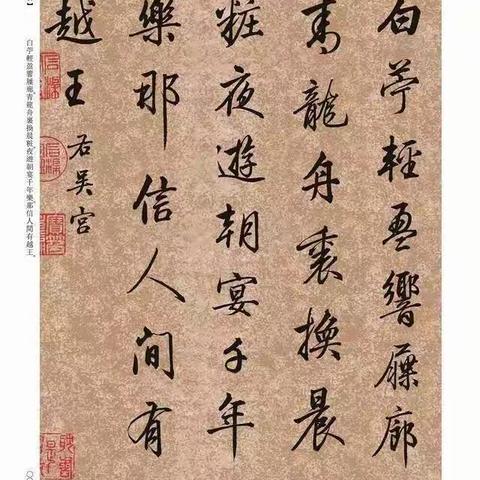 白苧輕盈響屧廊
青龍舟裏換晨
粧夜遊朝宴千年
樂那信人間有
越王
右吳宮
白苧輕盈響屧廊青龍舟裏換晨粧夜遊朝宴千年樂那信人間有越王